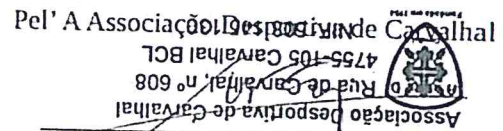 Pel' A Associação Desportiva de Carvalhal
Associação Desportiva de Carvalhal
Rua de Carvalhal, nº 608
4755-105 Carvalhal BCL